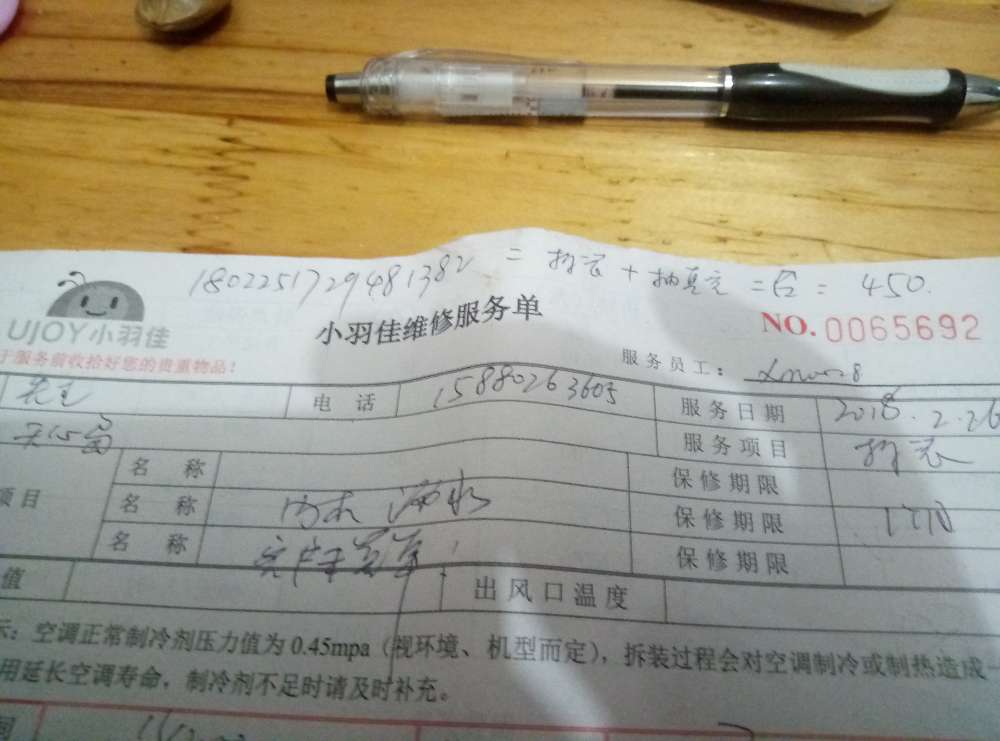 1802251729481382 = 拆装 + 抽真空 = 合 = 450.
UJOY小羽佳
小羽佳维修服务单
NO.0065692
于服务前收拾好您的贵重物品!
服务员工:
先生 电话 15880263605 服务日期 2018.2.26
服务项目 拆装
名称 保修期限
项目 名称 内机漏水 保修期限 1个月
名称 保修期限
值 出风口温度
示:空调正常制冷剂压力值为0.45mpa(视环境、机型而定),拆装过程会对空调制冷或制热造成一
用延长空调寿命,制冷剂不足时请及时补充。